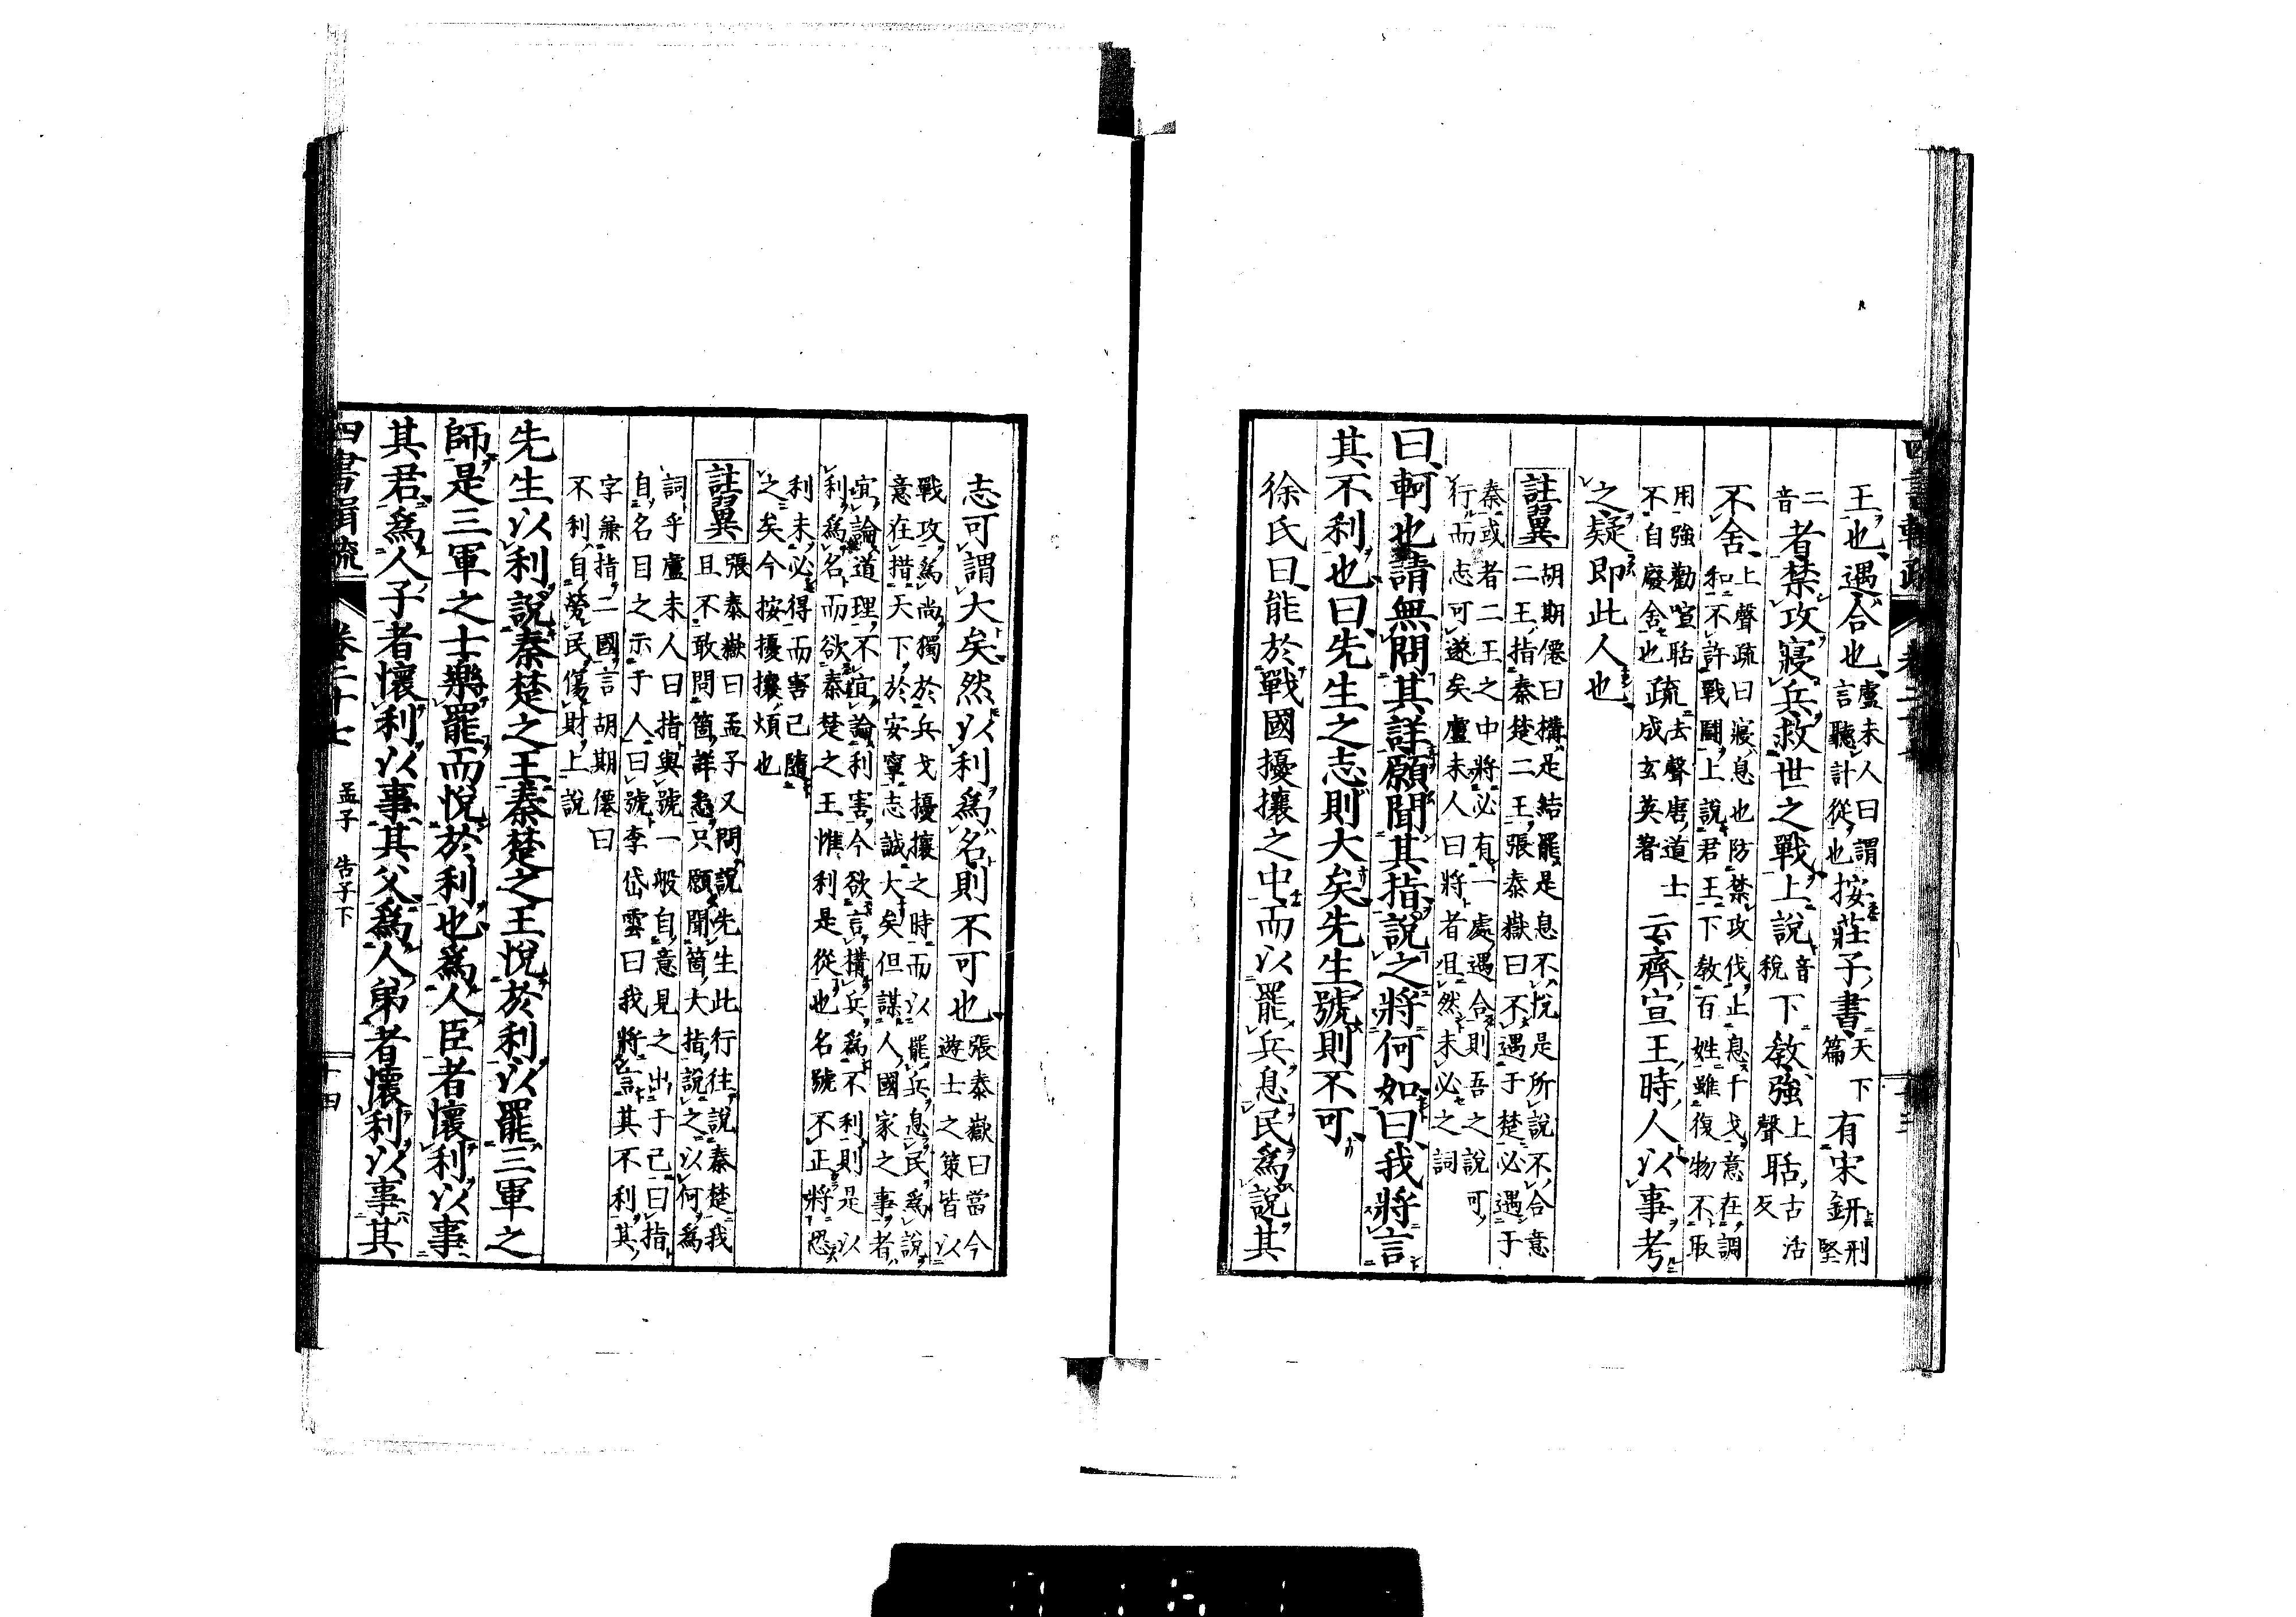 王也遇合也盧未人曰謂言聽計從也按莊子書天下篇有宋鈃刑堅
二音者禁攻寢兵救世之戰上說音稅下教強上聲聒古活反
不舍上聲疏曰寢息也防禁攻伐止息干戈意在調和不許戰鬪上說君王下教百姓雖復物不取
用強勸喧聒不自廢舍也疏去聲唐道士成玄英著云齊宣王時人以事考
之疑即此人也
註翼胡期僊曰構是結罷是息不悅是所說不合意二王指秦楚二王張泰嶽曰不遇于楚必遇于
秦或者二王之中將必有一處遇合則吾之說可行而志可遂矣盧未人曰將者且然未必之詞
曰軻也請無問其詳願聞其指說之將何如曰我將言
其不利也曰先生之志則大矣先生號則不可
徐氏曰能於戰國擾攘之中而以罷兵息民為說其
志可謂大矣然以利為名則不可也張泰嶽曰當今遊士之策皆以
戰攻為尚獨於兵戈擾攘之時而以罷兵息民為說意在措天下於安寧志誠大矣但謀人國家之事者
宜論道理不宜論利害今欲言構兵為不利則是以利為名而欲秦楚之王惟利是從也名號不正將恐
利未必得而害已隨之矣今按擾攘煩也
註翼張泰嶽曰孟子又問說先生此行往說秦楚我且不敢問箇詳悉只願聞箇大指說之以何為
詞乎盧未人曰指與號一般自意見之出于己曰指自名目之示于人曰號李岱雲曰我將言其不利其
字兼指二國言胡期僊曰不利自勞民傷財上說
先生以利說秦楚之王秦楚之王悅於利以罷三軍之
師是三軍之士樂罷而悅於利也為人臣者懷利以事
其君為人子者懷利以事其父為人弟者懷利以事其
四書輯疏 卷二十七 孟子 告子下 十四